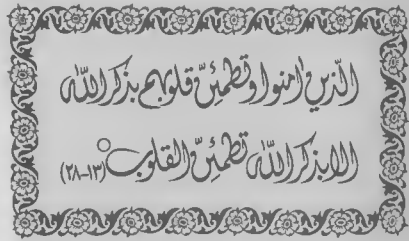 الذین اٰمنوا وتطمئنّ قلوبهم بذکر اللّٰه
الا بذکر اللّٰه تطمئنّ القلوب (۱۳-۲۸)